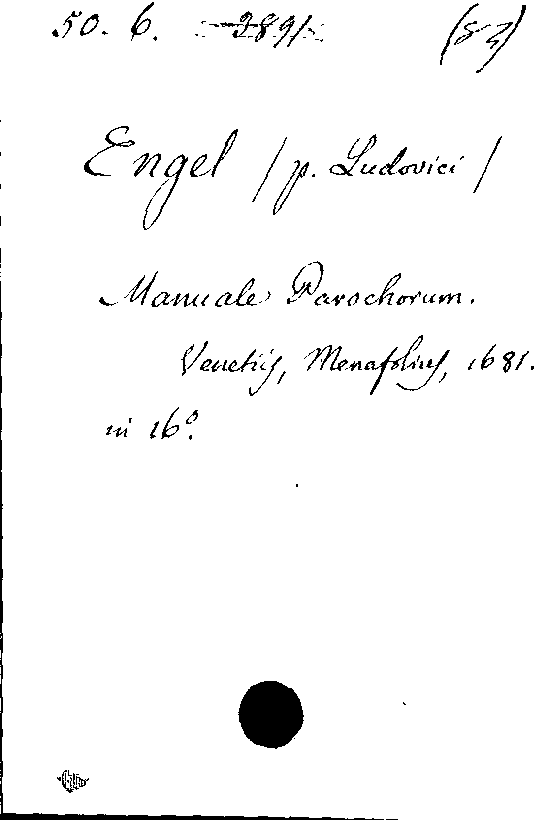 50. 6. 2891 (83)
Engel / p. Ludovici /
Manuale Parochorum.
Venetiis, Menafolius, 1681.
in 16º.